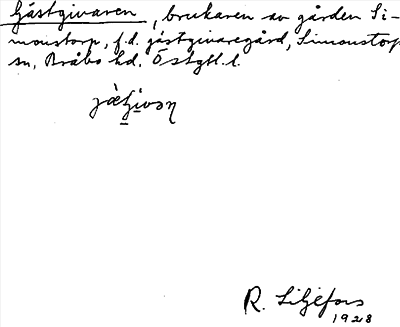 Gästgivaren, brukaren av gården Si-
monstorp, f.d. gästgivaregård, Simonstorp
sn, Bråbo hd. Östgtl.l.
R. Liljefors
1928